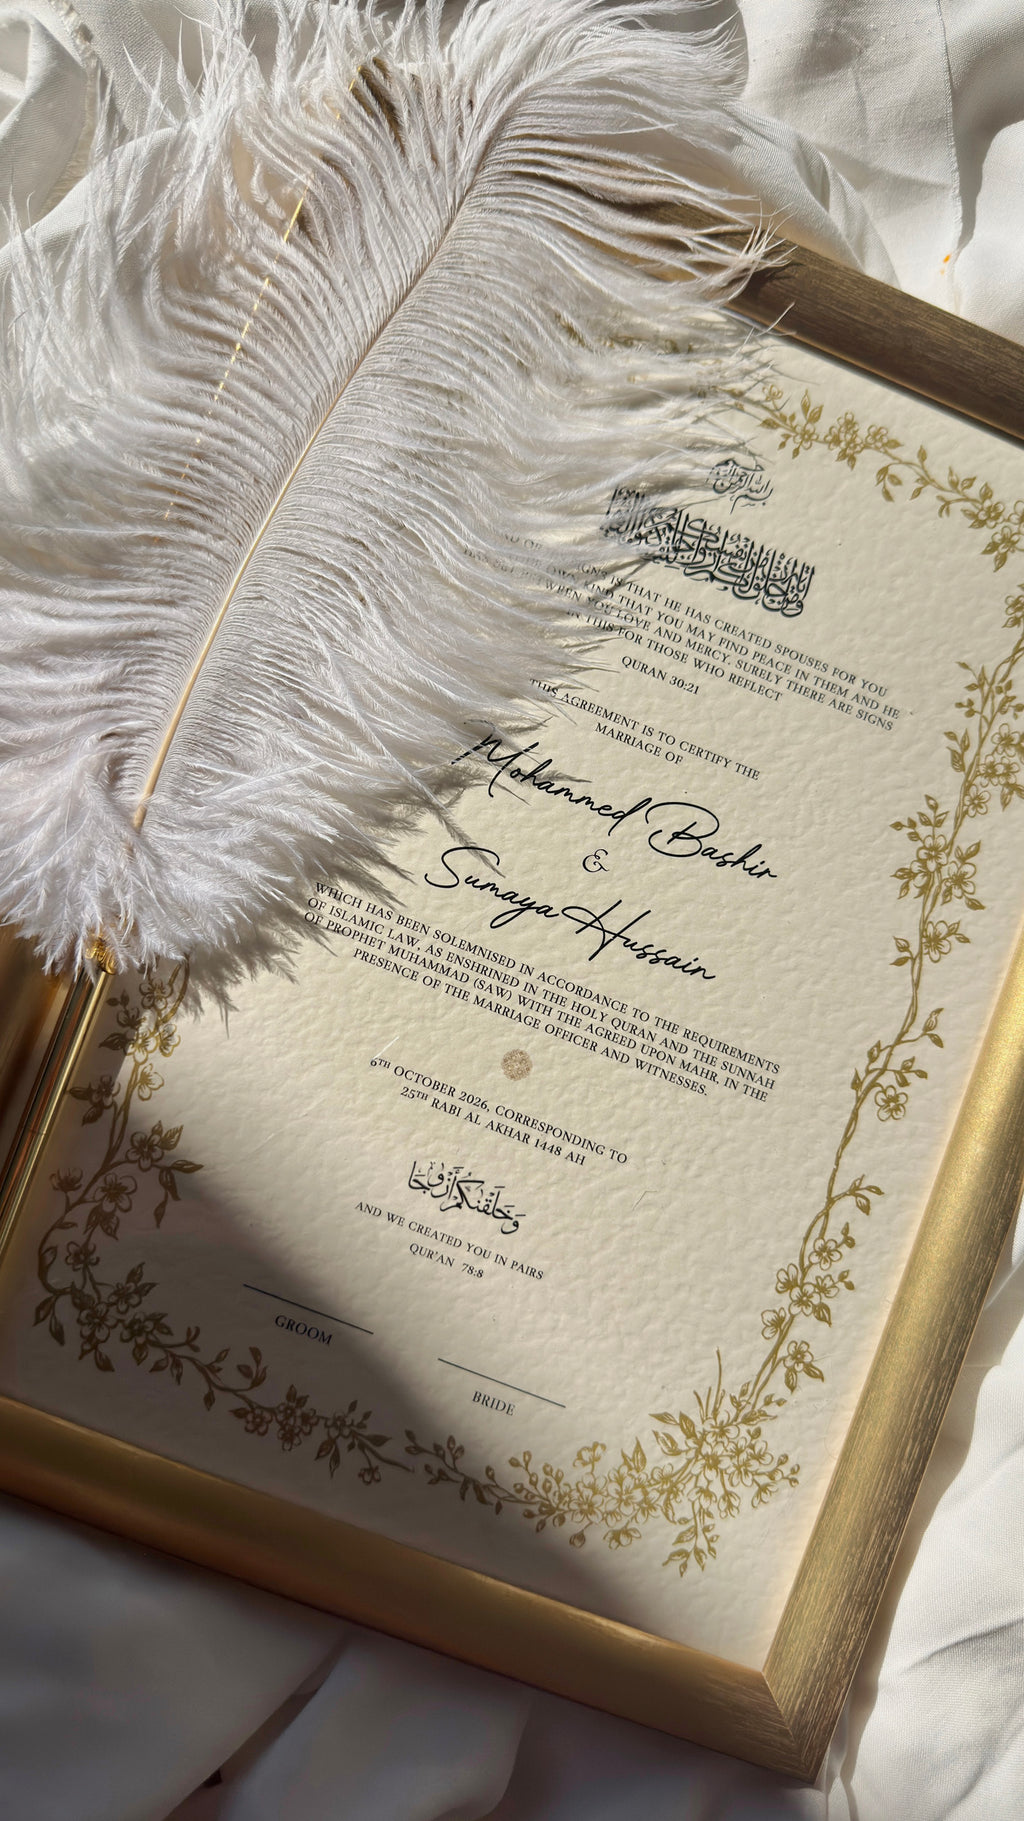 بسم الله الرحمن الرحيم
OF SIGNS IS THAT HE HAS CREATED SPOUSES FOR YOU
OWN KIND THAT YOU MAY FIND PEACE IN THEM AND HE
BETWEEN YOU LOVE AND MERCY. SURELY THERE ARE SIGNS
IN THIS FOR THOSE WHO REFLECT
QURAN 30:21
THIS AGREEMENT IS TO CERTIFY THE
MARRIAGE OF
Mohammed Bashir
&
Sumaya Hussain
WHICH HAS BEEN SOLEMNISED IN ACCORDANCE TO THE REQUIREMENTS
OF ISLAMIC LAW, AS ENSHRINED IN THE HOLY QURAN AND THE SUNNAH
OF PROPHET MUHAMMAD (SAW) WITH THE AGREED UPON MAHR, IN THE
PRESENCE OF THE MARRIAGE OFFICER AND WITNESSES.
6TH OCTOBER 2026, CORRESPONDING TO
25TH RABI AL AKHAR 1448 AH
وَخَلَقْنَٰكُمْ أَزْوَٰجًا
AND WE CREATED YOU IN PAIRS
QUR'AN 78:8
GROOM
BRIDE